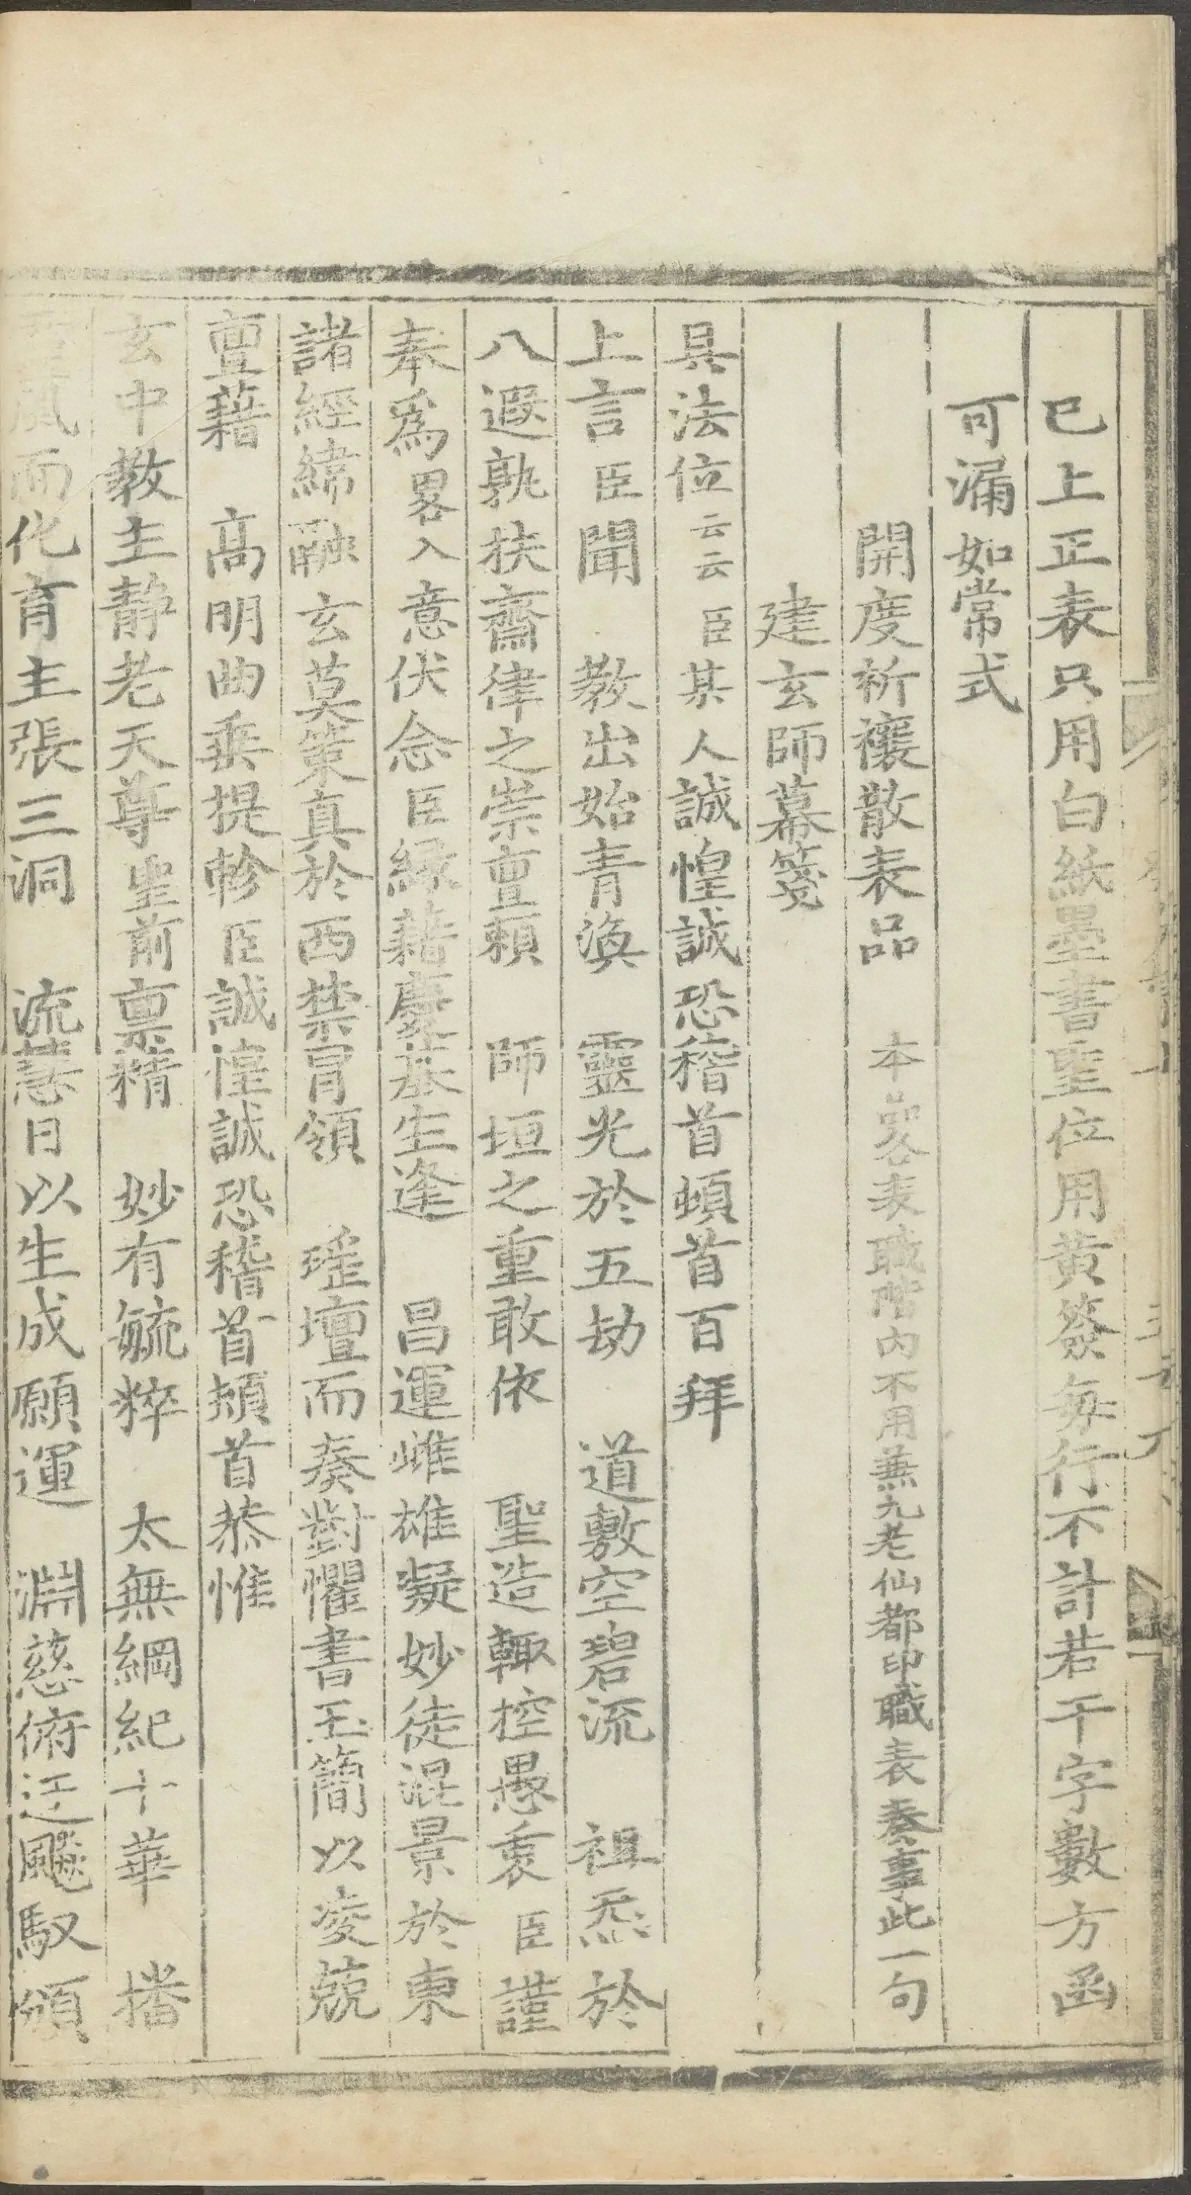 已上正表只用白紙墨書聖位用黃簽每行不計若干字數方函
可漏如常式
開度祈禳散表品 本品各表職階內不用兼九老仙都印職表奏事此一句
建玄師幕箋
具法位云云臣某人誠惶誠恐稽首頓首百拜
上言臣聞 教出始青渙 靈光於五劫 道敷空碧流 祖炁於
八遐孰扶齋律之崇亶賴 師垣之重敢依 聖造輙控愚衷臣謹
奉爲畧入意伏念臣緣藉慶基生逢 昌運雌雄凝妙徒混景於東
諸經緯融玄莫策真於西禁冐領 瑤壇而奏對懼書玉簡以凌兢
亶藉 高明曲垂提軫臣誠惶誠恐稽首頓首恭惟
玄中教主靜老天尊聖前稟精 妙有毓粹 太無綱紀十華 播
風而化育主張三洞 流慧日以生成願運 淵慈俯迂飈馭頒